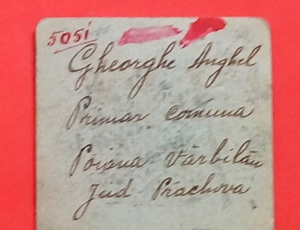 5051
Gheorghe Anghel
Primar comuna
Poiana Vărbilău
Jud Prachova